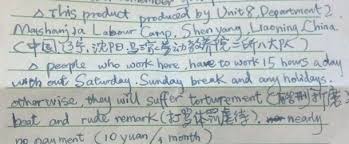 △ This product produced by Unit 8, Department 2,
Mashanjia Labour Camp, Shen yang, Liaoning, China.
(中国，辽宁，沈阳，马三家劳动教养院二所八大队)
△ people who work here, have to work 15 hours a day
with out Saturday, Sunday break and any holidays.
otherwise, they will suffer torturement (酷刑折磨)
beat and rude remark (打骂体罚虐待). nearly
no payment (10 yuan/1 month)